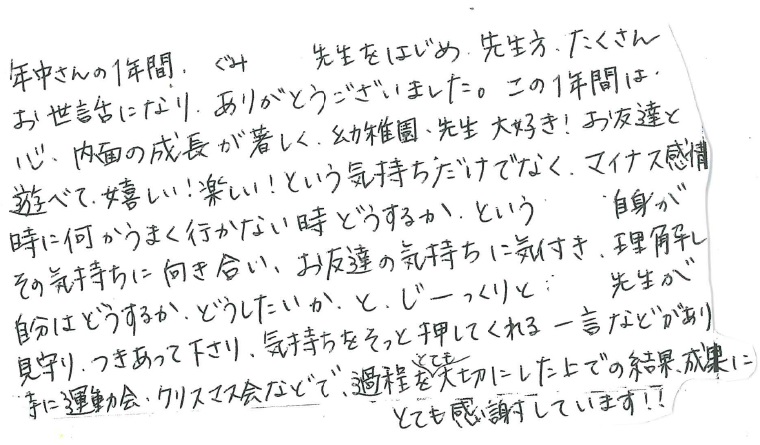 年中さんの1年間、ぐみ 先生をはじめ、先生方、たくさん
お世話になり、ありがとうございました。この1年間は、
心、内面の成長が著しく、幼稚園、先生 大好き！お友達と
遊べて、嬉しい！楽しい！という気持ちだけでなく、マイナス感情
時に何かうまく行かない時 どうするか、という 自身が
その気持ちに向き合い、お友達の気持ちに気付き、理解し
自分はどうするか、どうしたいか、と、じーっくりと 先生が
見守り、つきあって下さり、気持ちをそっと押してくれる 一言などがあり
特に運動会、クリスマス会などで、過程をとても大切にした上での結果、成果に
とても感謝しています!!